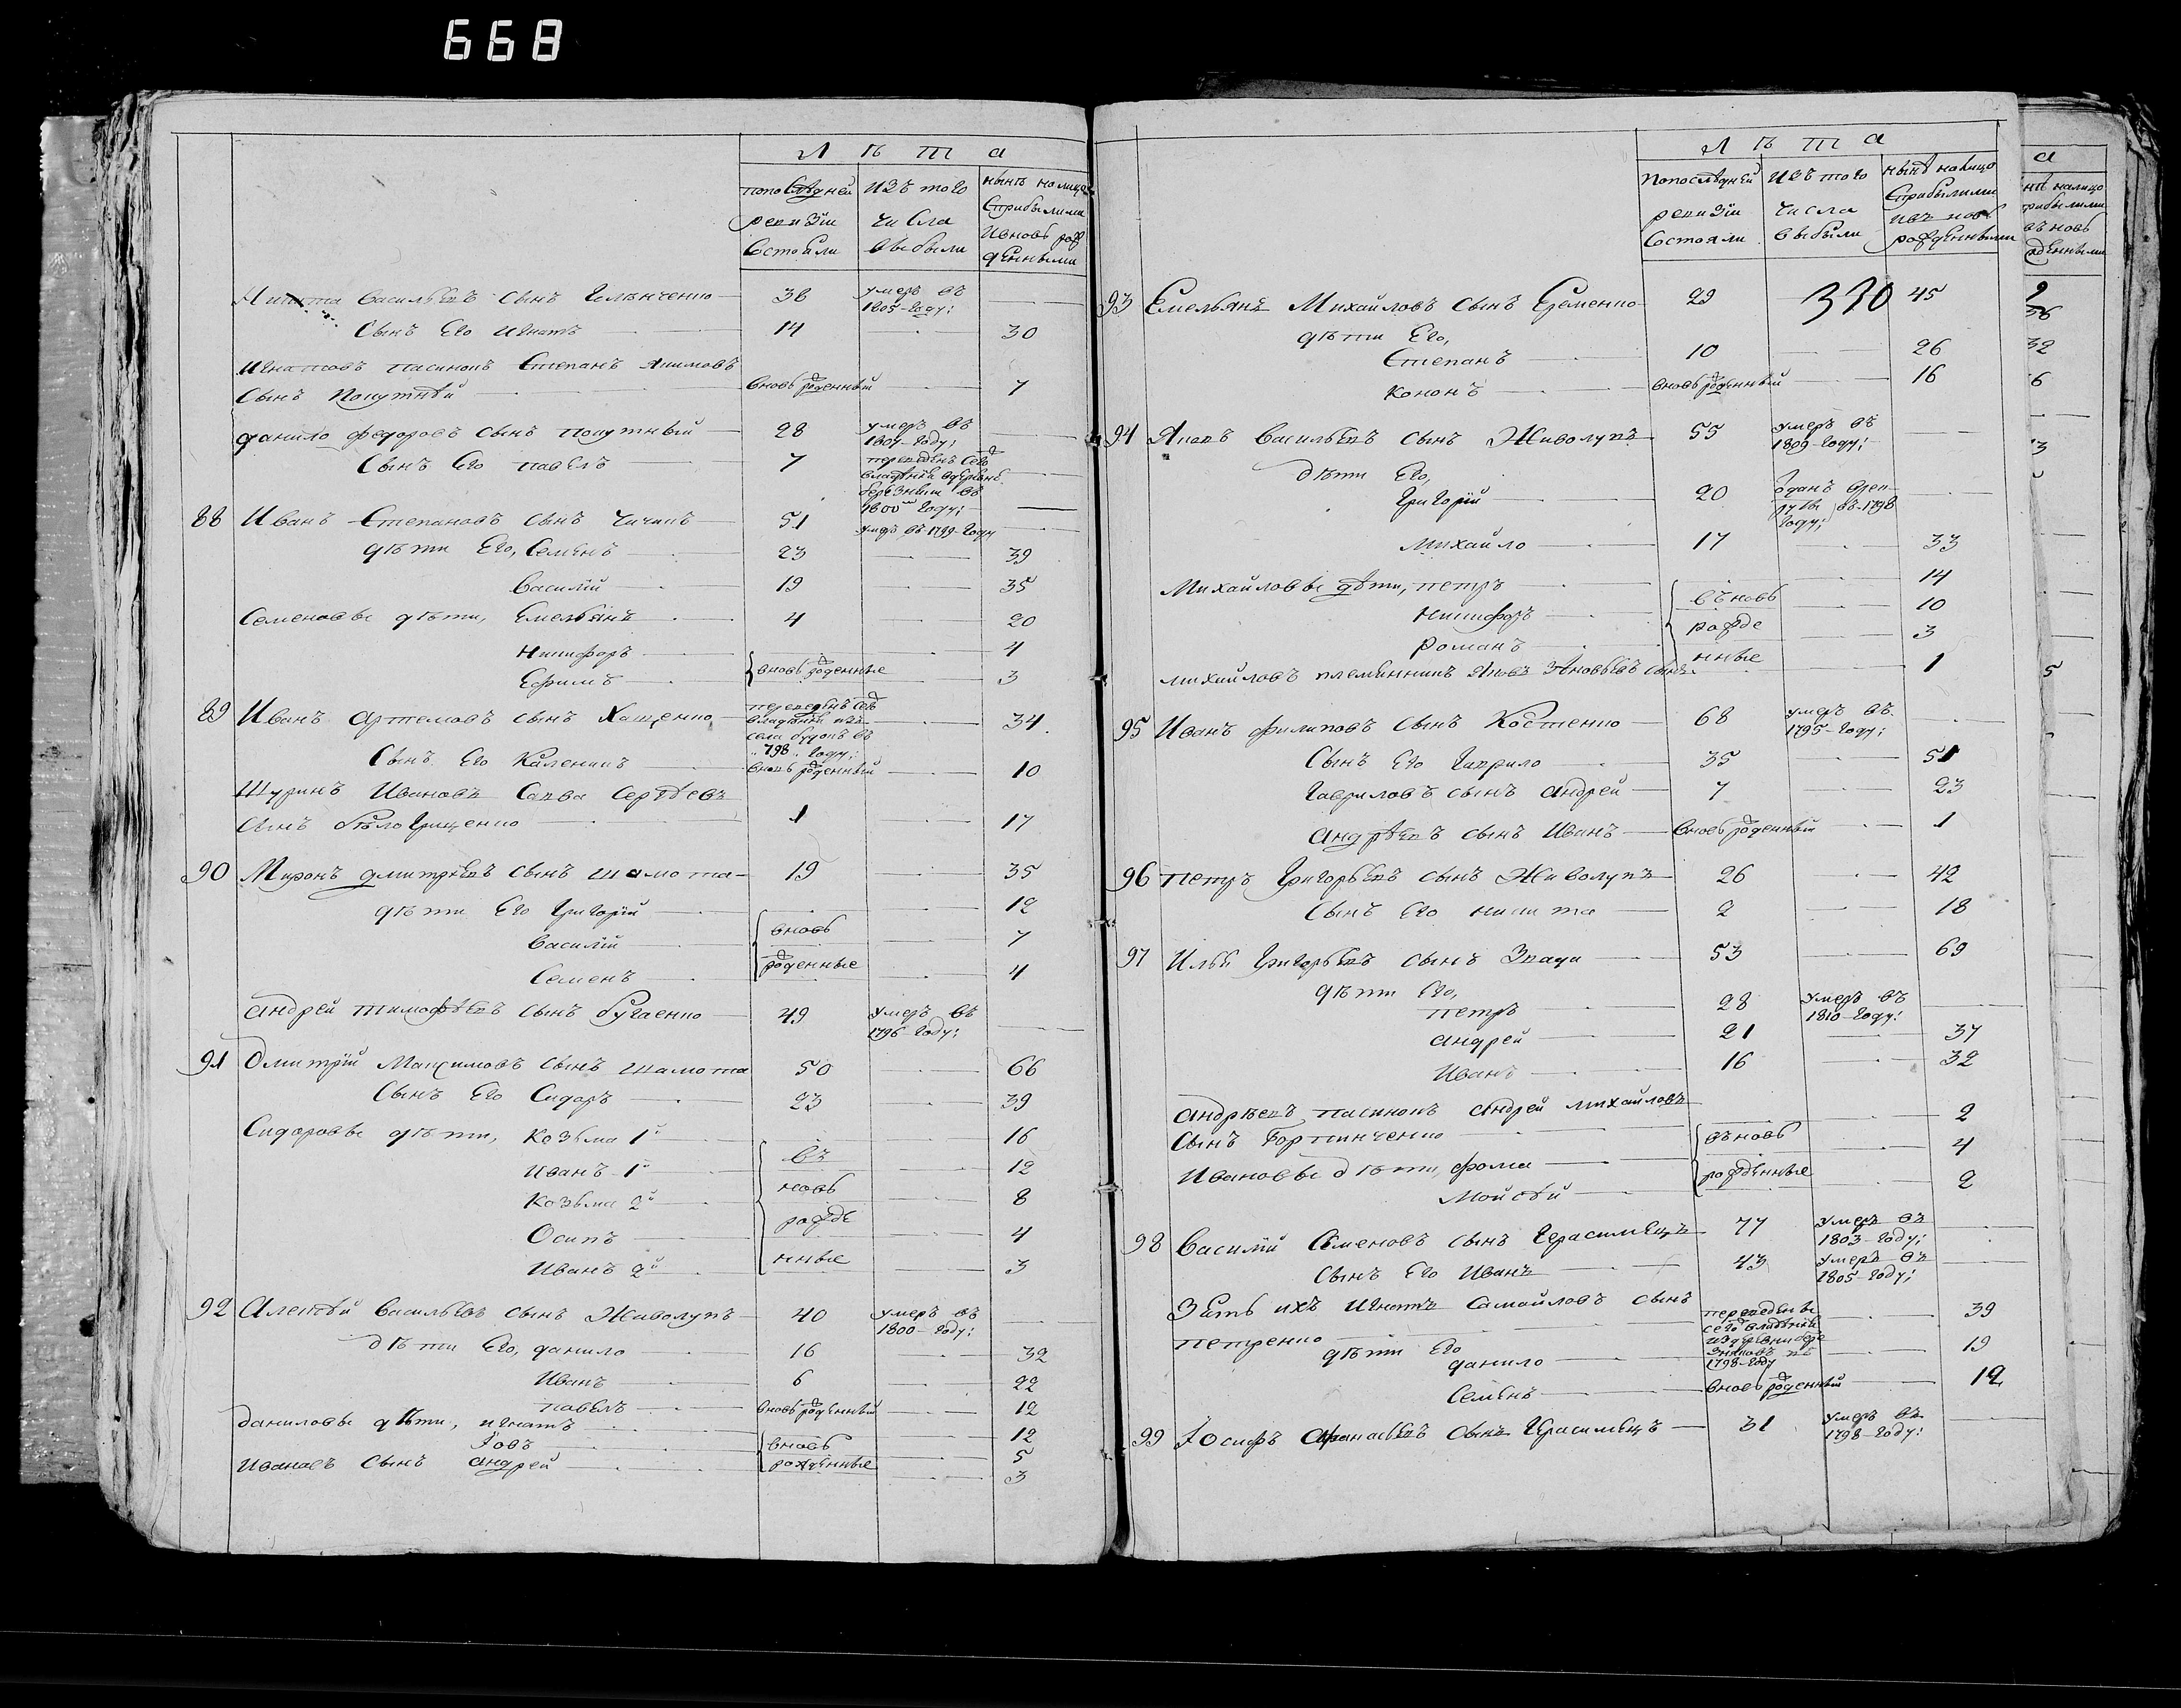 668
Лѣта
по последней ревизіи состояли
изъ того числа выбыли
нынѣ на лицо съ прибылыми и вновь рожденными
Никита Васильевъ сынъ 38 умеръ въ 1805 году;
Сынъ его Игнатъ 14 30
Игнатовъ пасинокъ Степанъ Якимовъ
Сынъ Попутній вновь рожденный 7
Данило Федоровъ сынъ Попутный 28 умеръ въ 1807 году;
Сынъ его Павелъ 7 переведенъ сего владѣнія въ 1800 году;
88 Иванъ Степановъ сынъ Чичикъ 51 умеръ въ 1799 году
дѣти его, Семенъ 23 39
Василій 19 35
Семеновы дѣти, Емельянъ 4 20
Никифоръ 4
Ефимъ вновь рожденные 3
89 Иванъ Артемовъ сынъ Хащенко переведенъ сего владѣнія изъ села Будокъ въ 798 году; 34
Сынъ его Каленикъ вновь рожденный 10
Шуринъ Ивановъ Савва Сергѣевъ
Сынъ Бѣлогрищенко 1 17
90 Миронъ Дмитріевъ сынъ Шамота 19 35
дѣти его Григорій 12
Василій вновь 7
Семенъ рожденные 4
Андрей Тимофѣевъ сынъ Бугаенко 49 умеръ въ 1796 году;
91 Дмитрій Максимовъ сынъ Шамота 50 66
Сынъ его Сидоръ 23 39
Сидоровы дѣти, Козьма 1й 16
Иванъ 1й въ 12
Козьма 2й новь 8
Осипъ рожде 4
Иванъ 2й нные 3
92 Алексѣй Васильевъ сынъ Живолупъ 40 умеръ въ 1800 году;
дѣти его, Данило 16 32
Иванъ 6 22
Павелъ вновь рожденный 12
Даниловы дѣти, Игнатъ 12
Іовъ вновь 5
Ивановъ сынъ Андрей рожденные 3
Лѣта
по последней ревизіи состояли
изъ того числа выбыли
нынѣ на лицо съ прибылыми изъ новь рожденными
330
93 Емельянъ Михайловъ сынъ Еременко 29 45
дѣти его,
Степанъ 10 26
Кононъ вновь рожденный 16
94 Яковъ Васильевъ сынъ Живолупъ 55 умеръ въ 1809 году;
дѣти его,
Григорій 20 отданъ въ рекруты въ 1798 году;
Михайло 17 33
Михайловы дѣти, Петръ 14
Никифоръ въ новь 10
Романъ рожде 3
Михайловъ племянникъ Яковъ Зѣновьевъ сынъ нные 1
95 Иванъ Филиповъ сынъ Костенко 68 умеръ въ 1795 году;
Сынъ его Гаврило 35 51
Гавриловъ сынъ Андрей 7 23
Андрѣевъ сынъ Иванъ вновь рожденный 1
96 Петръ Григорьевъ сынъ Живолупъ 26 42
Сынъ его Никита 2 18
97 Илья Григорьевъ сынъ 53 69
дѣти его,
Петръ 28 умеръ въ 1810 году;
Андрей 21 37
Иванъ 16 32
Андрѣевъ пасинокъ Андрей Михайловъ
Сынъ Бортниченко 2
Ивановы дѣти, Фома въ новь 4
Мойсѣй рожденные 2
98 Василій Семеновъ сынъ Герасимецъ 77 умеръ въ 1803 году;
Сынъ его Иванъ 43 умеръ въ 1805 году;
Зять ихъ Игнатъ Самойловъ сынъ
Петренко переведены сего владѣнія 1798 году 39
дѣти его
Данило 19
Семенъ вновь рожденный 12
99 Іосифъ Афанасьевъ сынъ Герасимецъ 31 умеръ въ 1798 году;